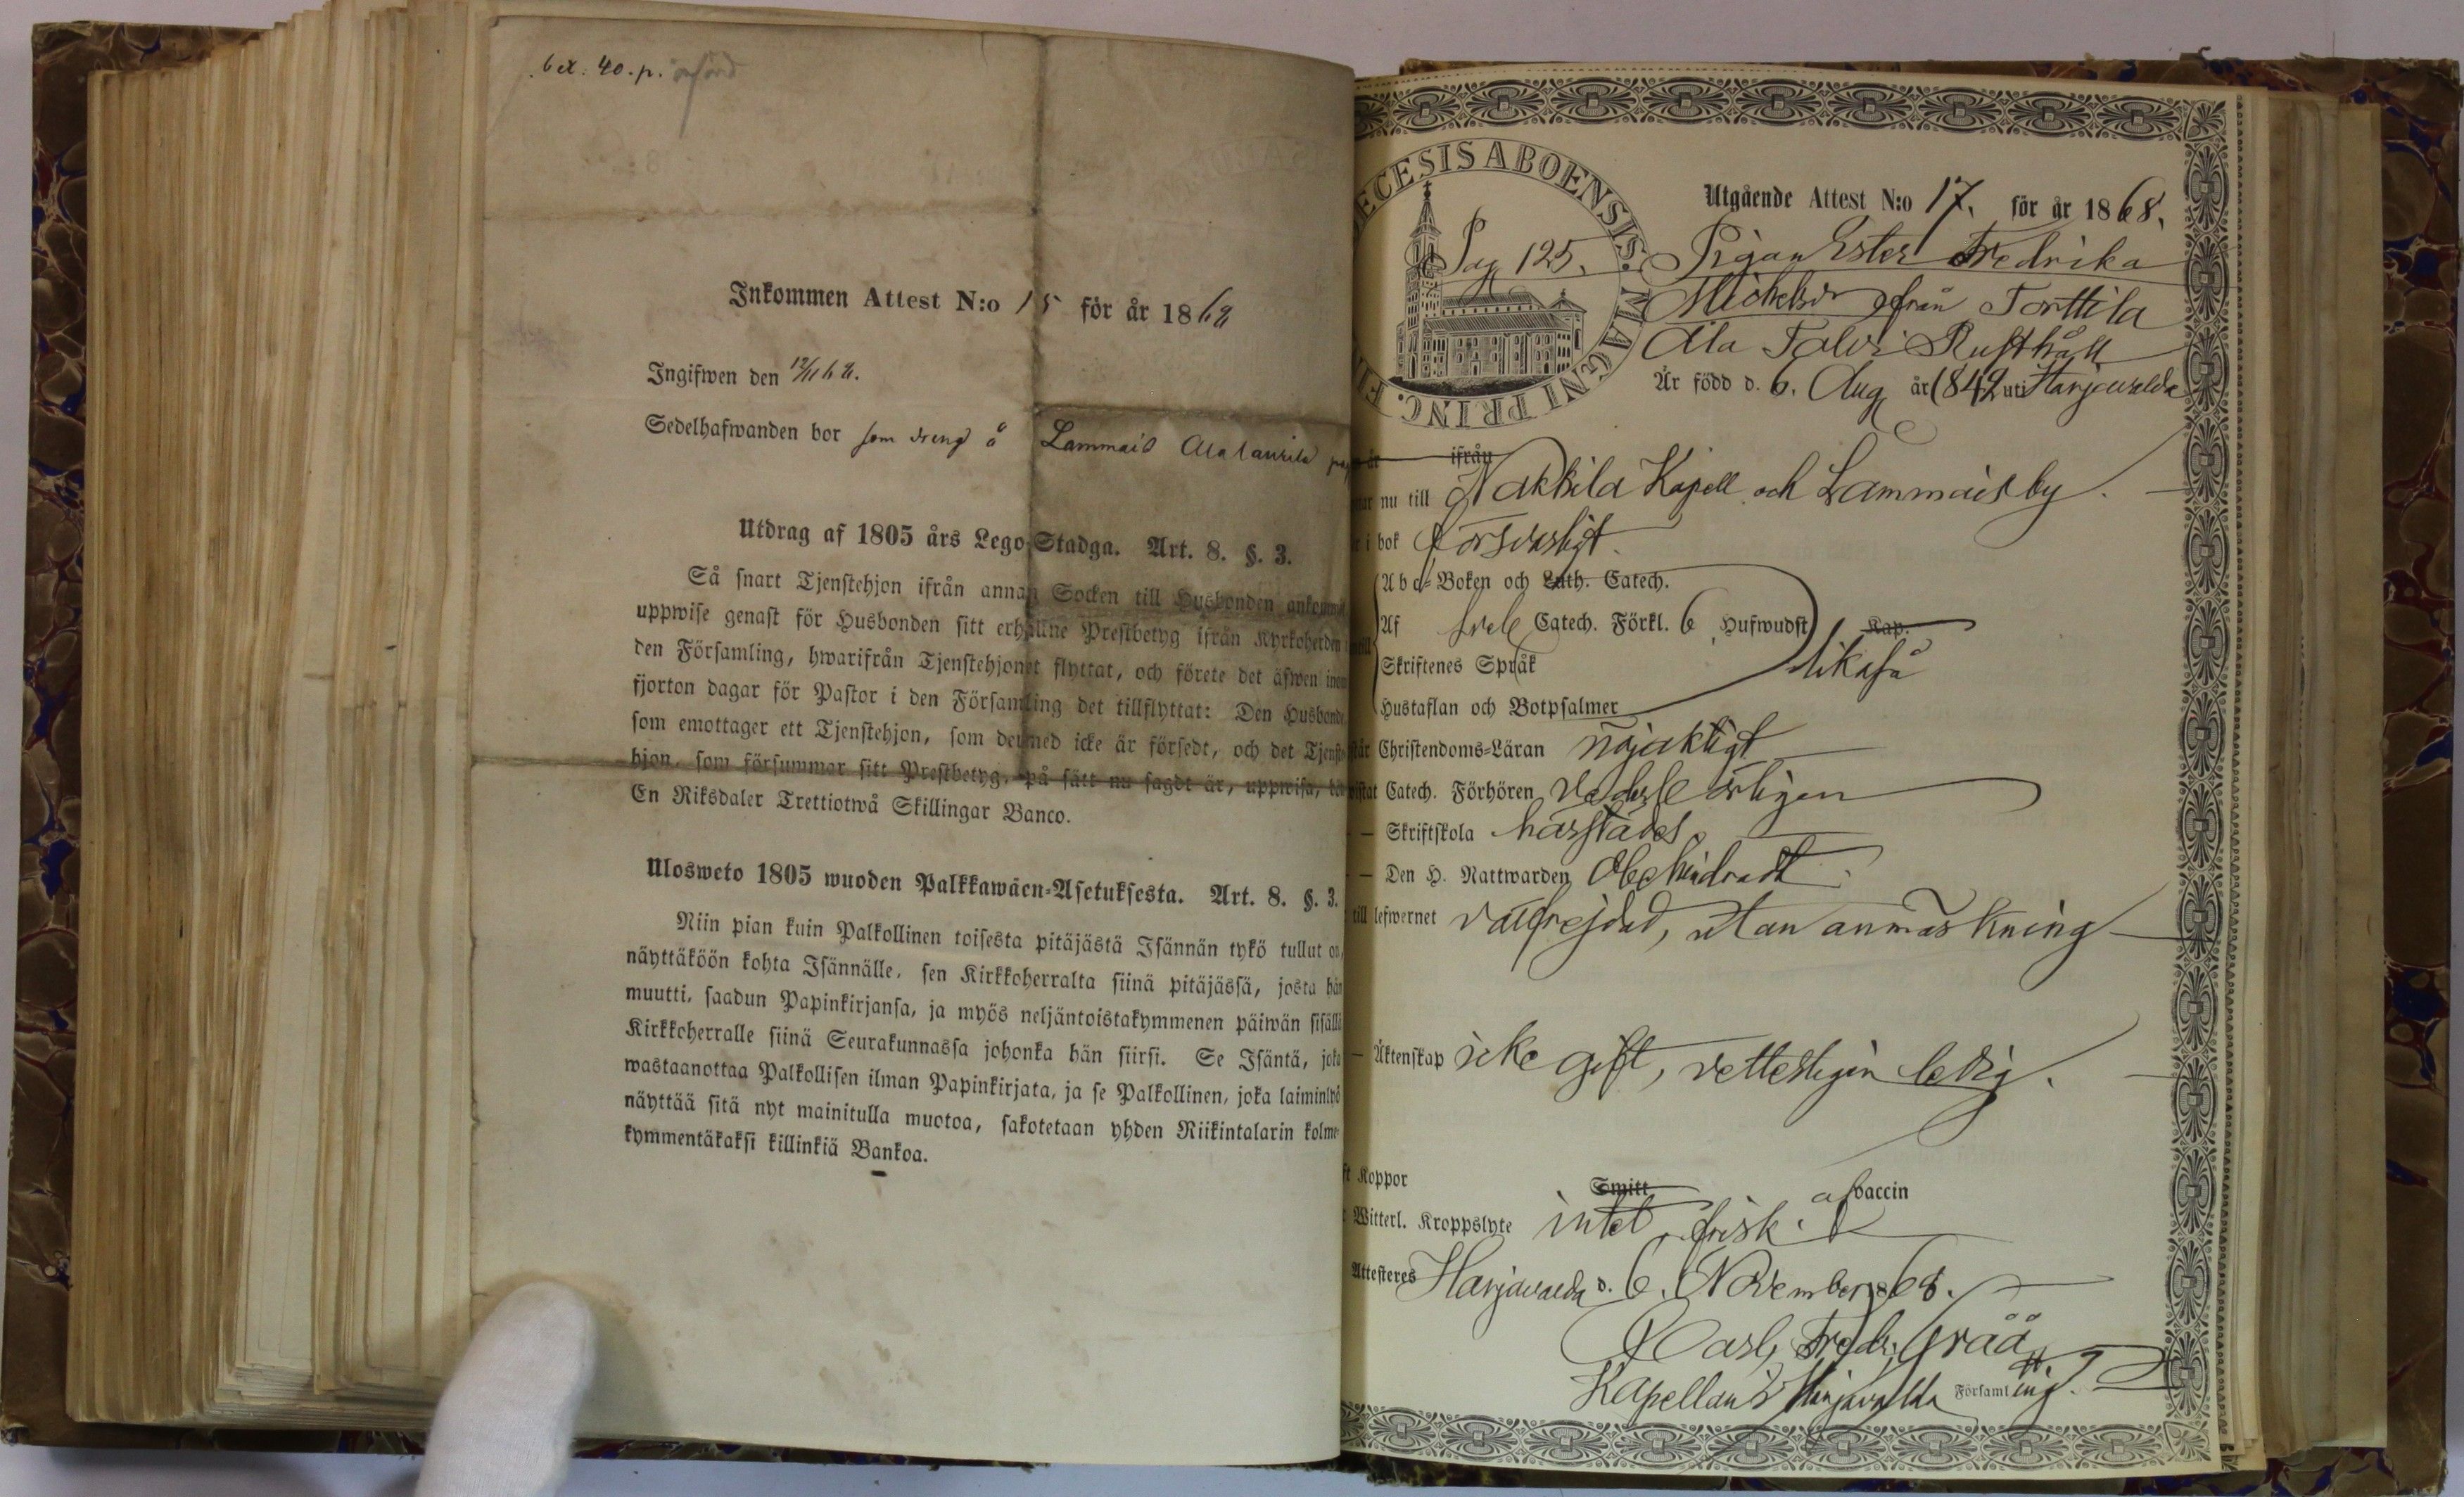 bet. 40. p.
Inkommen Attest N:o 15 för år 1868
Ingifwen den 12/11 68.
Sedelhafwanden bor som dreng å Lammais Alalaurila
Utdrag af 1805 års Lego-Stadga. Art. 8. §. 3.
Så snart Tjenstehjon ifrån annan Socken till Husbonden ankommit
uppwise genast för Husbonden sitt erhållne Prestbetyg ifrån Kyrkoherden i
den Församling, hwarifrån Tjenstehjonet flyttat, och förete det äfwen inom
fjorton dagar för Pastor i den Församling det tillflyttat: Den Husbonde,
som emottager ett Tjenstehjon, som dermed icke är försedt, och det Tjenste-
hjon, som försummar sitt Prestbetyg, på sätt nu sagdt är, uppwisa,
En Riksdaler Trettiotwå Skillingar Banco.
Ulosweto 1805 wuoden Palkkawäen-Asetuksesta. Art. 8. §. 3.
Niin pian kuin Palkollinen toisesta pitäjästä Isännän tykö tullut on,
näyttäköön kohta Isännälle, sen Kirkkoherralta siinä pitäjässä, josta hän
muutti, saadun Papinkirjansa, ja myös neljäntoistakymmenen päiwän sisällä
Kirkkoherralle siinä Seurakunnassa johonka hän siirsi. Se Isäntä, joka
wastaanottaa Palkollisen ilman Papinkirjata, ja se Palkollinen, joka laiminlyö
näyttää sitä nyt mainitulla muotoa, sakotetaan yhden Riikintalarin kolme-
kymmentäkaksi killinkiä Bankoa.
ECESIS ABOENSIS. MAGNI PRINC. F
Utgående Attest N:o 17. för år 1868.
Pag 125. Pigan Ester Fredrika
Michelsdr från Torttila
Ala Talvi Rusthåll
Är född d. 6. Aug år 1842 uti Harjavalda
år ifrån
nu till Nakkila Kapell och Lammais by.
i bok försvarligt.
Abc-Boken och Luth. Catech.
Af Svebe Catech. Förkl. 6 Hufwudst Kap.
Skriftenes Språk likaså
Hustaflan och Botpsalmer
Christendoms-Läran nöjaktigt
Catech. Förhören vederbörligen
— Skriftskola härstädes
— Den H. Nattwarden obehindradt
till lefwernet välfrejdad, utan anmärkning
— Äktenskap icke gift, vetterligen ledig.
Koppor Smitt af vaccin
Witterl. Kroppslyte intet, frisk.
Attesteres Harjavalda d. 6. November 1868.
Carl Fredr. Gråå
Kapellan i Harjavalda Församling.